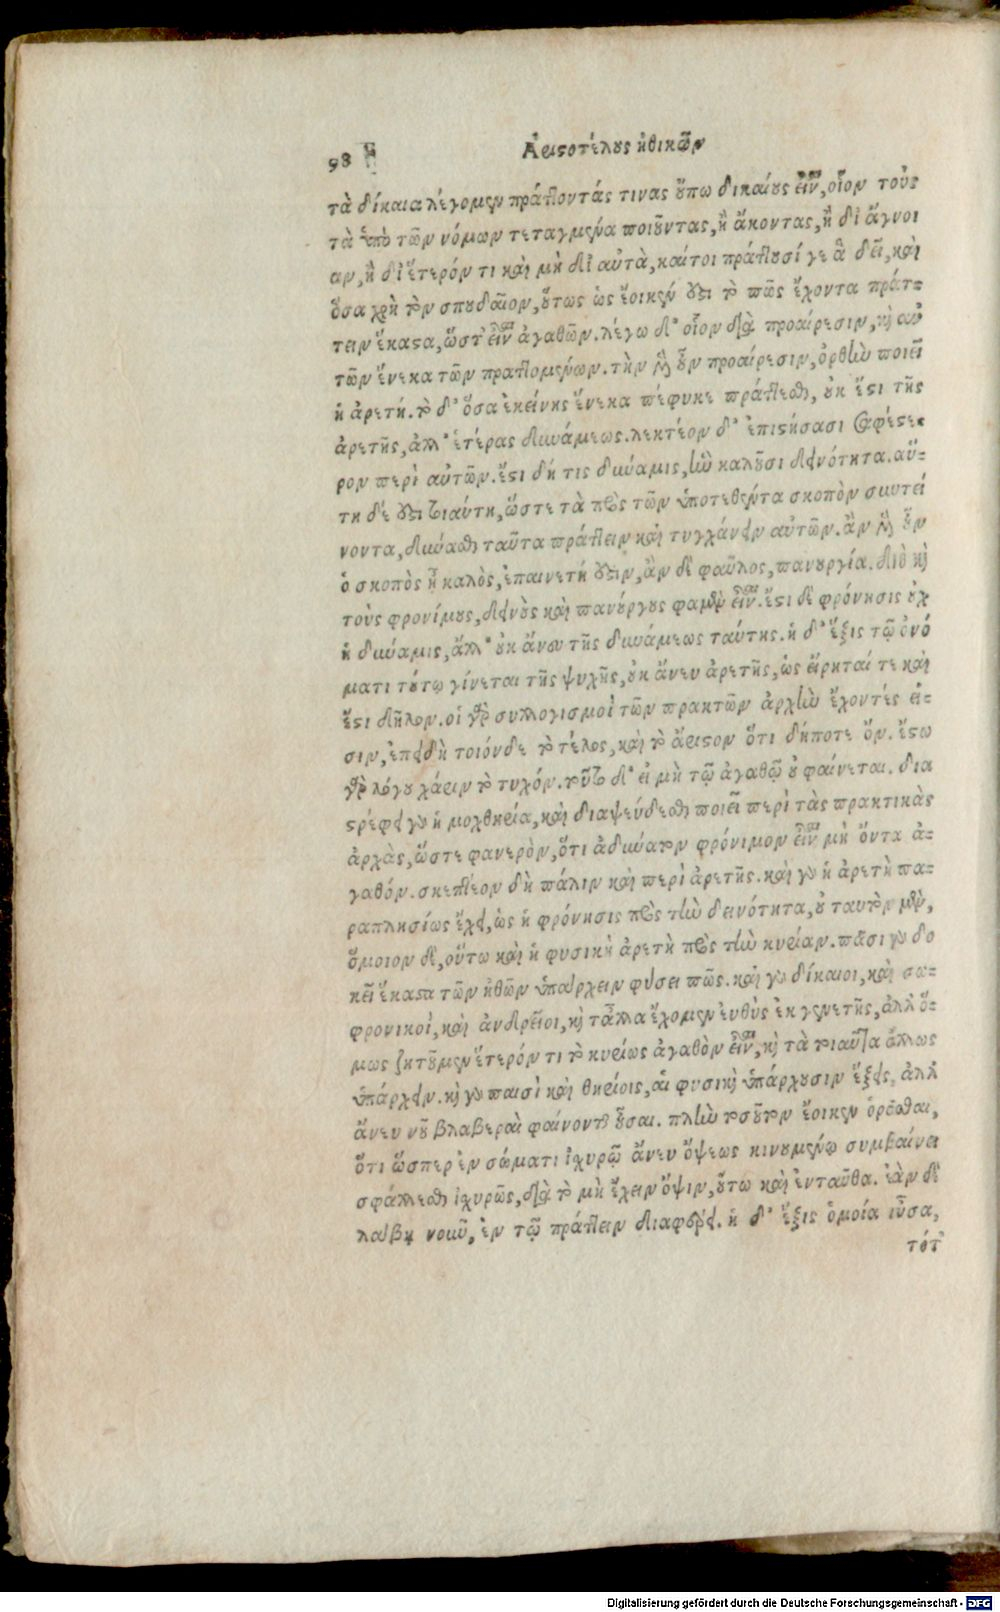 98 Ἀριστοτέλους ἠθικῶν
τὰ δίκαια λέγομεν πράττοντάς τινας οὔπω δικαίους εἶναι, οἷον τοὺς
τὰ ὑπὸ τῶν νόμων τεταγμένα ποιοῦντας, ἢ ἄκοντας, ἢ δι' ἄγνοι
αν, ἢ δι' ἕτερόν τι καὶ μὴ δι' αὐτὰ, καίτοι πράττουσί γε ἃ δεῖ, καὶ
ὅσα χρὴ τὸν σπουδαῖον, οὕτως ὡς ἔοικεν ἐστι τὸ πῶς ἔχοντα πράτ=
τειν ἕκαστα, ὥστ' εἶναι ἀγαθῶν. λέγω δ' οἷον διὰ προαίρεσιν, καὶ αὐ
τῶν ἕνεκα τῶν πραττομένων. τὴν μὲν οὖν προαίρεσιν, ὀρθὴν ποιεῖ
ἡ ἀρετή. τὸ δ' ὅσα ἐκείνης ἕνεκα πέφυκε πράττεσθαι, οὐκ ἔστι τῆς
ἀρετῆς, ἀλλ' ἑτέρας δυνάμεως. λεκτέον δ' ἐπιστήσασι σαφέστε=
ρον περὶ αὐτῶν. ἔστι δή τις δύναμις, ἣν καλοῦσι δεινότητα. αὕ=
τη δέ ἐστι τοιαύτη, ὥστε τὰ πρὸς τῶν ὑποτεθέντα σκοπὸν συντεί
νοντα, δύνασθαι ταῦτα πράττειν καὶ τυγχάνειν αὐτῶν. ἂν μὲν οὖν
ὁ σκοπὸς ᾖ καλὸς, ἐπαινετή ἐστιν, ἂν δὲ φαῦλος, πανουργία. διὸ καὶ
τοὺς φρονίμους, δεινοὺς καὶ πανούργους φαμὲν εἶναι. ἔστι δὲ φρόνησις οὐχ
ἡ δύναμις, ἀλλ' οὐκ ἄνευ τῆς δυνάμεως ταύτης. ἡ δ' ἕξις τῷ ὀνό
ματι τούτῳ γίνεται τῆς ψυχῆς, οὐκ ἄνευ ἀρετῆς, ὡς εἴρηταί τε καὶ
ἔστι δῆλον. οἱ γὰρ συλλογισμοὶ τῶν πρακτῶν ἀρχὴν ἔχοντές εἰ=
σιν, ἐπειδὴ τοιόνδε τὸ τέλος, καὶ τὸ ἄριστον ὅτι δήποτε ὄν. ἔστω
γὰρ λόγου χάριν τὸ τυχόν. τοῦτο δ' εἰ μὴ τῷ ἀγαθῷ οὐ φαίνεται. δια
στρέφει γὰρ ἡ μοχθηρία, καὶ διαψεύδεσθαι ποιεῖ περὶ τὰς πρακτικὰς
ἀρχὰς, ὥστε φανερὸν, ὅτι ἀδύνατον φρόνιμον εἶναι μὴ ὄντα ἀ=
γαθόν. σκεπτέον δὴ πάλιν καὶ περὶ ἀρετῆς. καὶ γὰρ ἡ ἀρετὴ πα=
ραπλησίως ἔχει, ὡς ἡ φρόνησις πρὸς τὴν δεινότητα, οὐ ταυτὸν μὲν,
ὅμοιον δὲ, οὕτω καὶ ἡ φυσικὴ ἀρετὴ πρὸς τὴν κυρίαν. πᾶσι γὰρ δο
κεῖ ἕκαστα τῶν ἠθῶν ὑπάρχειν φύσει πῶς. καὶ γὰρ δίκαιοι, καὶ σω=
φρονικοί, καὶ ἀνδρεῖοι, καὶ τἆλλα ἔχομεν ἐυθὺς ἐκ γενετῆς, ἀλλ' ὅ=
μως ζητοῦμεν ἕτερόν τι τὸ κυρίως ἀγαθὸν εἶναι, καὶ τὰ τοιαῦτα ἄλλως
ὑπάρχειν. καὶ γὰρ παισὶ καὶ θηρίοις, αἱ φυσικαὶ ὑπάρχουσιν ἕξεις, ἀλλ'
ἄνευ νοῦ βλαβεραὶ φαίνονται οὖσαι. πλὴν τοσοῦτον ἔοικεν ὁρᾶσθαι,
ὅτι ὥσπερ ἐν σώματι ἰσχυρῷ ἄνευ ὄψεως κινουμένῳ συμβαίνει
σφάλλεσθαι ἰσχυρῶς, διὰ τὸ μὴ ἔχειν ὄψιν, οὕτω καὶ ἐνταῦθα. ἐὰν δὲ
λάβῃ νοῦν, ἐν τῷ πράττειν διαφέρει. ἡ δ' ἕξις ὁμοία οὖσα,
τότ'
Digitalisierung gefördert durch die Deutsche Forschungsgemeinschaft - DFG